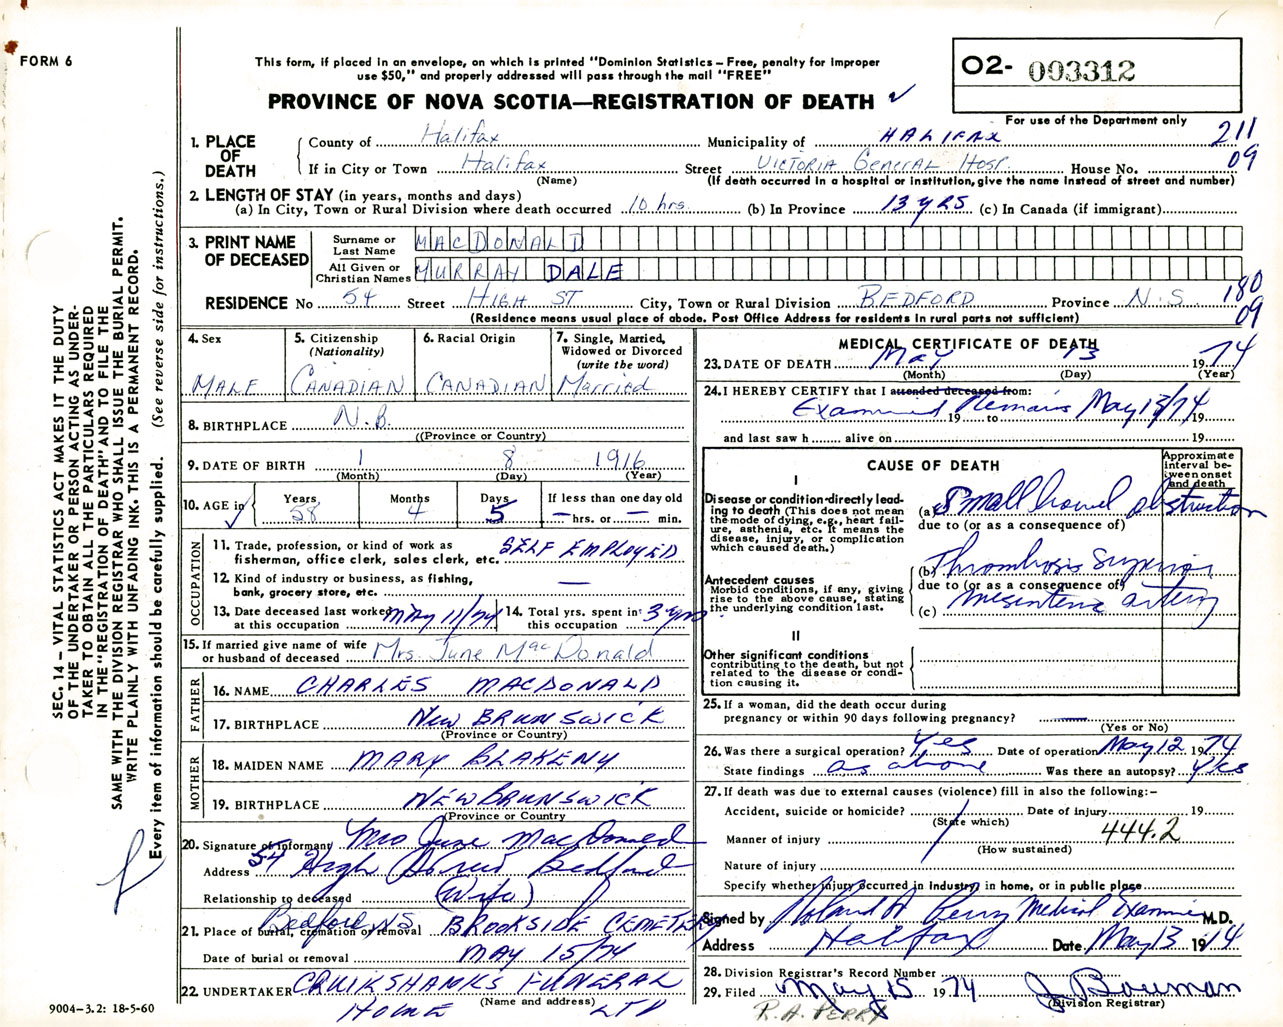 FORM 6
This form, if placed in an envelope, on which is printed "Dominion Statistics — Free, penalty for improper
use $50," and properly addressed will pass through the mail "FREE"
PROVINCE OF NOVA SCOTIA—REGISTRATION OF DEATH
O2- 003312
For use of the Department only
1. PLACE OF DEATH
County of Halifax Municipality of HALIFAX 211
If in City or Town Halifax Street VICTORIA GENERAL HOSP. House No. 09
(Name) (If death occurred in a hospital or institution, give the name instead of street and number)
2. LENGTH OF STAY (in years, months and days)
(a) In City, Town or Rural Division where death occurred 10 hrs. (b) In Province 13 yRS (c) In Canada (if immigrant)
3. PRINT NAME OF DECEASED
Surname or Last Name MACDONALD
All Given or Christian Names MURRAY DALE
RESIDENCE No 54 Street HIGH ST City, Town or Rural Division BEDFORD Province N.S. 180
09
(Residence means usual place of abode. Post Office Address for residents in rural parts not sufficient)
4. Sex
MALE
5. Citizenship
(Nationality)
CANADIAN
6. Racial Origin
CANADIAN
7. Single, Married,
Widowed or Divorced
(write the word)
Married
8. BIRTHPLACE N.B.
((Province or Country)
9. DATE OF BIRTH 1 8 1916
(Month) (Day) (Year)
10. AGE in
Years 58
Months 4
Days 5
If less than one day old
— hrs. or — min.
OCCUPATION
11. Trade, profession, or kind of work as
fisherman, office clerk, sales clerk, etc. SELF EMPLOYED
12. Kind of industry or business, as fishing,
bank, grocery store, etc. —
13. Date deceased last worked
at this occupation May 11/74
14. Total yrs. spent in
this occupation 3 yrs
15. If married give name of wife
or husband of deceased Mrs. June MacDonald
FATHER
16. NAME CHARLES MACDONALD
17. BIRTHPLACE NEW BRUNSWICK
(Province or Country)
MOTHER
18. MAIDEN NAME MARY BLAKENY
19. BIRTHPLACE NEW BRUNSWICK
(Province or Country
20. Signature of informant Mrs June MacDonald
Address 54 High Street Bedford
Relationship to deceased (Wife)
21. Place of burial, cremation or removal Bedford N.S. BROOKSIDE CEMETERY
Date of burial or removal MAY 15/74
22. UNDERTAKER CRUIKSHANKS FUNERAL
(Name and address)
HOME LTD
MEDICAL CERTIFICATE OF DEATH
23. DATE OF DEATH May 13 1974
(Month) (Day) (Year)
24. I HEREBY CERTIFY that I attended deceased from:
Examined Remains May 13/74 19 to 19
and last saw h alive on 19
CAUSE OF DEATH
Approximate
interval be-
tween onset
and death
I
Disease or condition directly lead-
ing to death (This does not mean
the mode of dying, e.g., heart fail-
ure, asthenia, etc. It means the
disease, injury, or complication
which caused death.)
(a) Small bowel obstruction
due to (or as a consequence of)
Antecedent causes
Morbid conditions, if any, giving
rise to the above cause, stating
the underlying condition last.
(b) Thrombosis Superior
due to (or as a consequence of)
(c) mesenteric artery
II
Other significant conditions
contributing to the death, but not
related to the disease or condi-
tion causing it.
25. If a woman, did the death occur during
pregnancy or within 90 days following pregnancy? —
(Yes or No)
26. Was there a surgical operation? Yes Date of operation May 12 1974
State findings as above Was there an autopsy? yes
27. If death was due to external causes (violence) fill in also the following:-
Accident, suicide or homicide? Date of injury 19
(State which)
Manner of injury 444.2
(How sustained)
Nature of injury
Specify whether injury occurred in industry, in home, or in public place
Signed by Roland A Perry Medical Examiner M.D.
Address Halifax Date May 13 1974
28. Division Registrar's Record Number
29. Filed May 15 1974 J Bowman
(Division Registrar)
R. A. PERRY
SEC. 14 — VITAL STATISTICS ACT MAKES IT THE DUTY
OF THE UNDERTAKER OR PERSON ACTING AS UNDER-
TAKER TO OBTAIN ALL THE PARTICULARS REQUIRED
IN THE "REGISTRATION OF DEATH" AND TO FILE THE
SAME WITH THE DIVISION REGISTRAR WHO SHALL ISSUE THE BURIAL PERMIT.
WRITE PLAINLY WITH UNFADING INK. THIS IS A PERMANENT RECORD.
Every item of information should be carefully supplied. (See reverse side for instructions.)
9004—3.2: 18-5-60